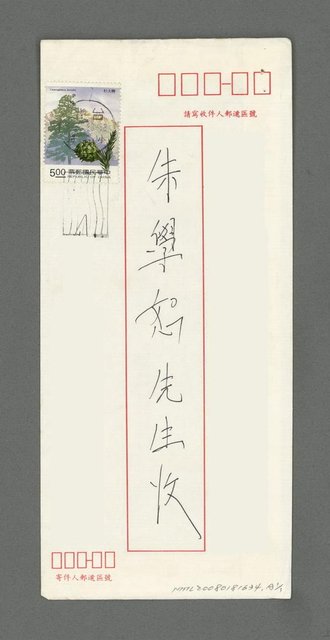 5.00
中華民國郵票
REPUBLIC OF CHINA
請寫收件人郵遞區號
朱學恕先生收
寄件人郵遞區號